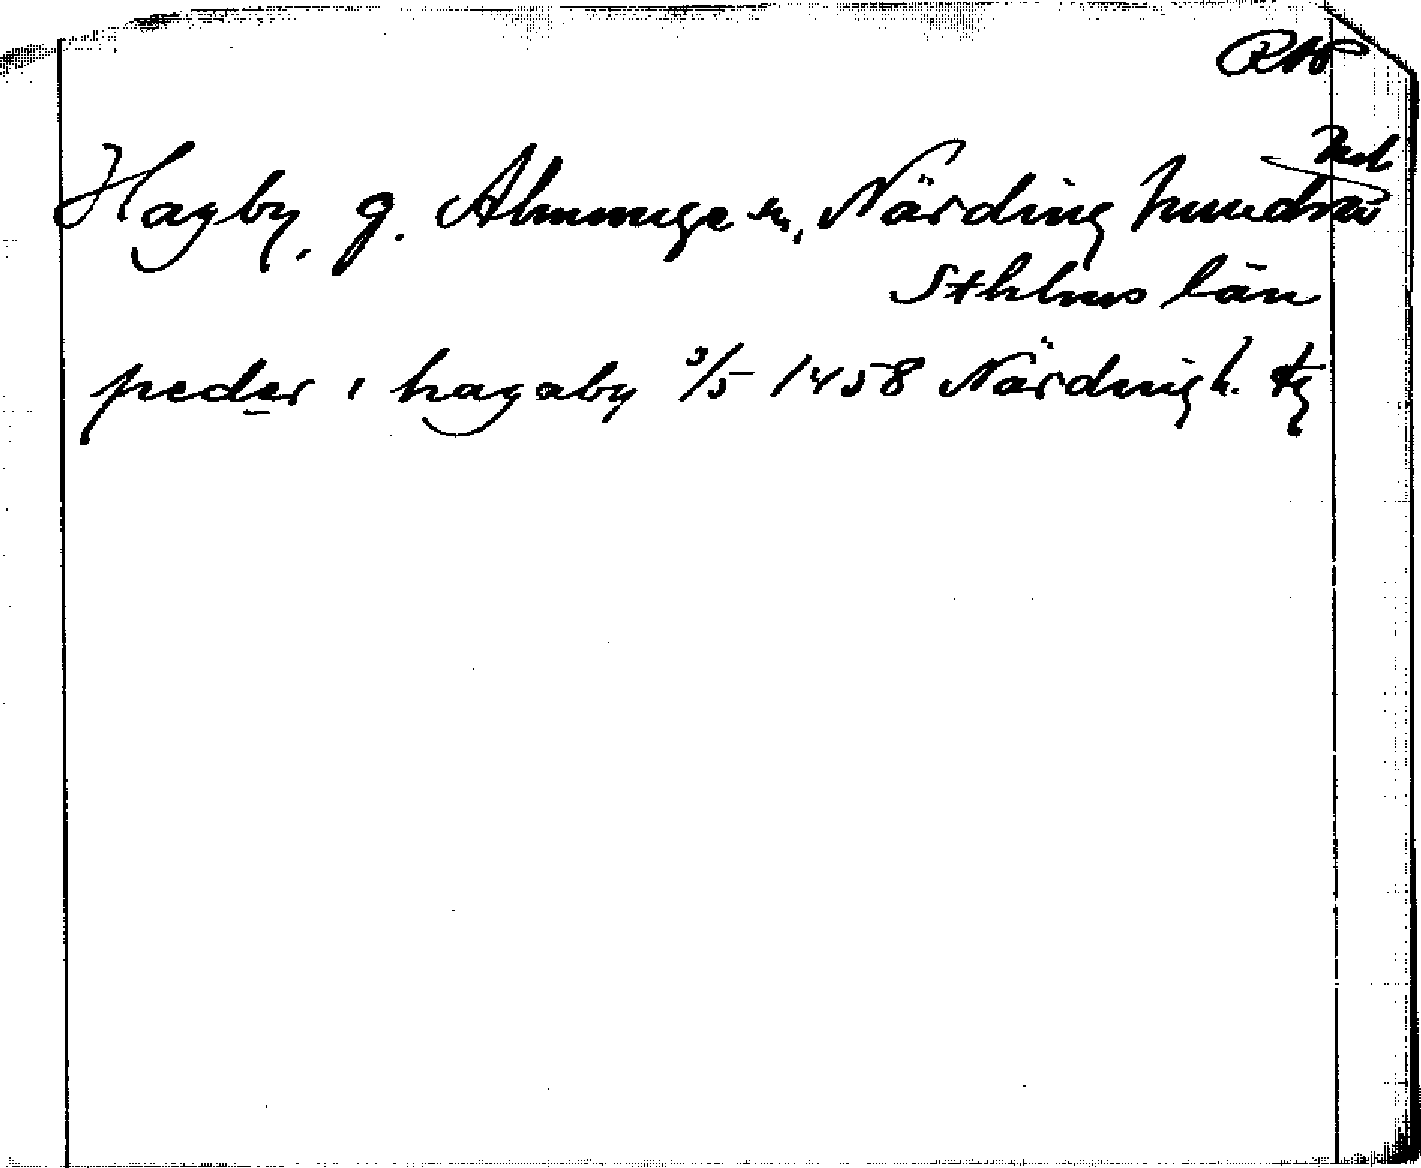 Hagby, g. Almunge sn, Närdinghundra
Sthlms län
peder i hagaby 3/5 1458 Närdingh. tg